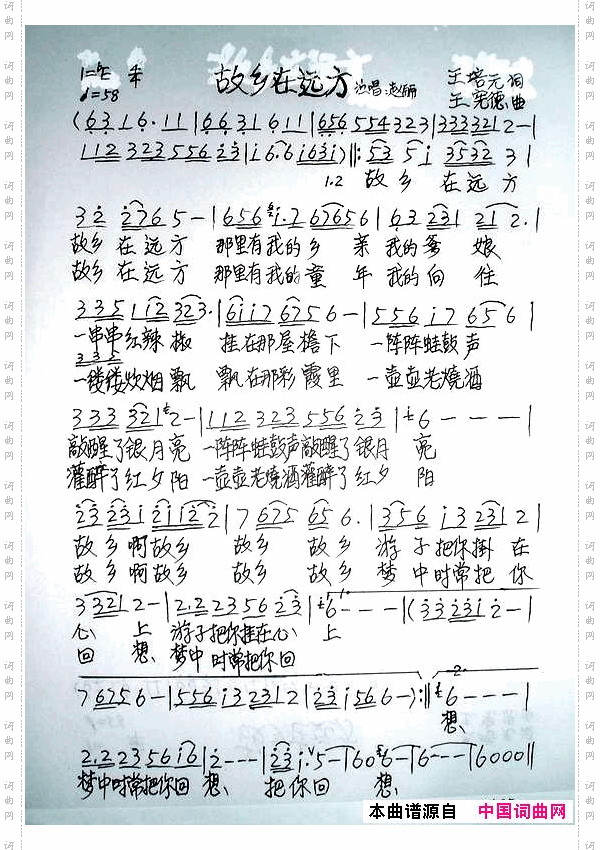 故乡在远方
1=♭E 4/4
♩=58
演唱:赵丽
王培元 词
王宪德 曲
(6 3 1 6 · 1 1 | 6 6 3 1 6 1 1 | 6 5 6 5 5 4 3 2 3 | 3 3 3 3 2 1 2 - |
1 1 2 3 2 3 5 5 6 2 3 | i 6 · 6 i 6 3 i ) ‖: 5 3 5 i 3 5 3 2 3 |
1.2 故 乡 在 远 方
3 2 2 7 6 5 - | 6 5 6 i · 7 6 7 6 5 6 | 6 3 2 3 1 2 1 2 · |
故乡 在 远 方 那里有我的 乡 亲 我的 爹 娘
故乡 在 远 方 那里有我的 童 年 我的 向 往
3 3 5 1 1 2 3 2 3 · | 6 i i 7 6 7 5 6 - | 5 5 6 i 7 6 5 6 |
一串串红辣 椒 挂在那屋檐下 一阵阵蛙鼓声
3 3 5
一缕缕炊烟 飘 飘在那彩霞里 一壶壶老烧酒
3 3 3 3 2 1 2 - | 1 1 2 3 2 3 5 5 6 2 3 | i 6 - - - |
敲醒了银月亮 一阵阵蛙鼓声敲醒了银月 亮
灌醉了红夕阳 一壶壶老烧酒灌醉了红夕 阳
2 3 2 3 i 2 i i 2 2 | 7 6 7 5 6 5 6 · | 3 5 6 i 3 2 3 1 2 |
故 乡 啊故乡 故乡 故 乡 游 子 把你掛 在
故 乡 啊故乡 故乡 故 乡 梦 中 时常把 你
3 3 2 1 2 - | 2 · 2 2 3 5 6 2 3 | i 6 - - - | ( 3 3 2 3 i 2 - |
心 上 游子把你挂在心 上
回 想、 梦中时常把你回
7 6 7 5 6 - | 5 5 6 i 3 2 3 1 2 | 2 3 i 5 6 6 - ) :‖ 2 6 - - - |
想、
2 · 2 2 3 5 6 i 6 | 2 - - - | 2 3 i · 5 - | 6 0 6 - | 6 - - - | 6 0 0 0 ‖
梦中时常把你回 想、 把你回 想、
本曲谱源自 中国词曲网
词曲网